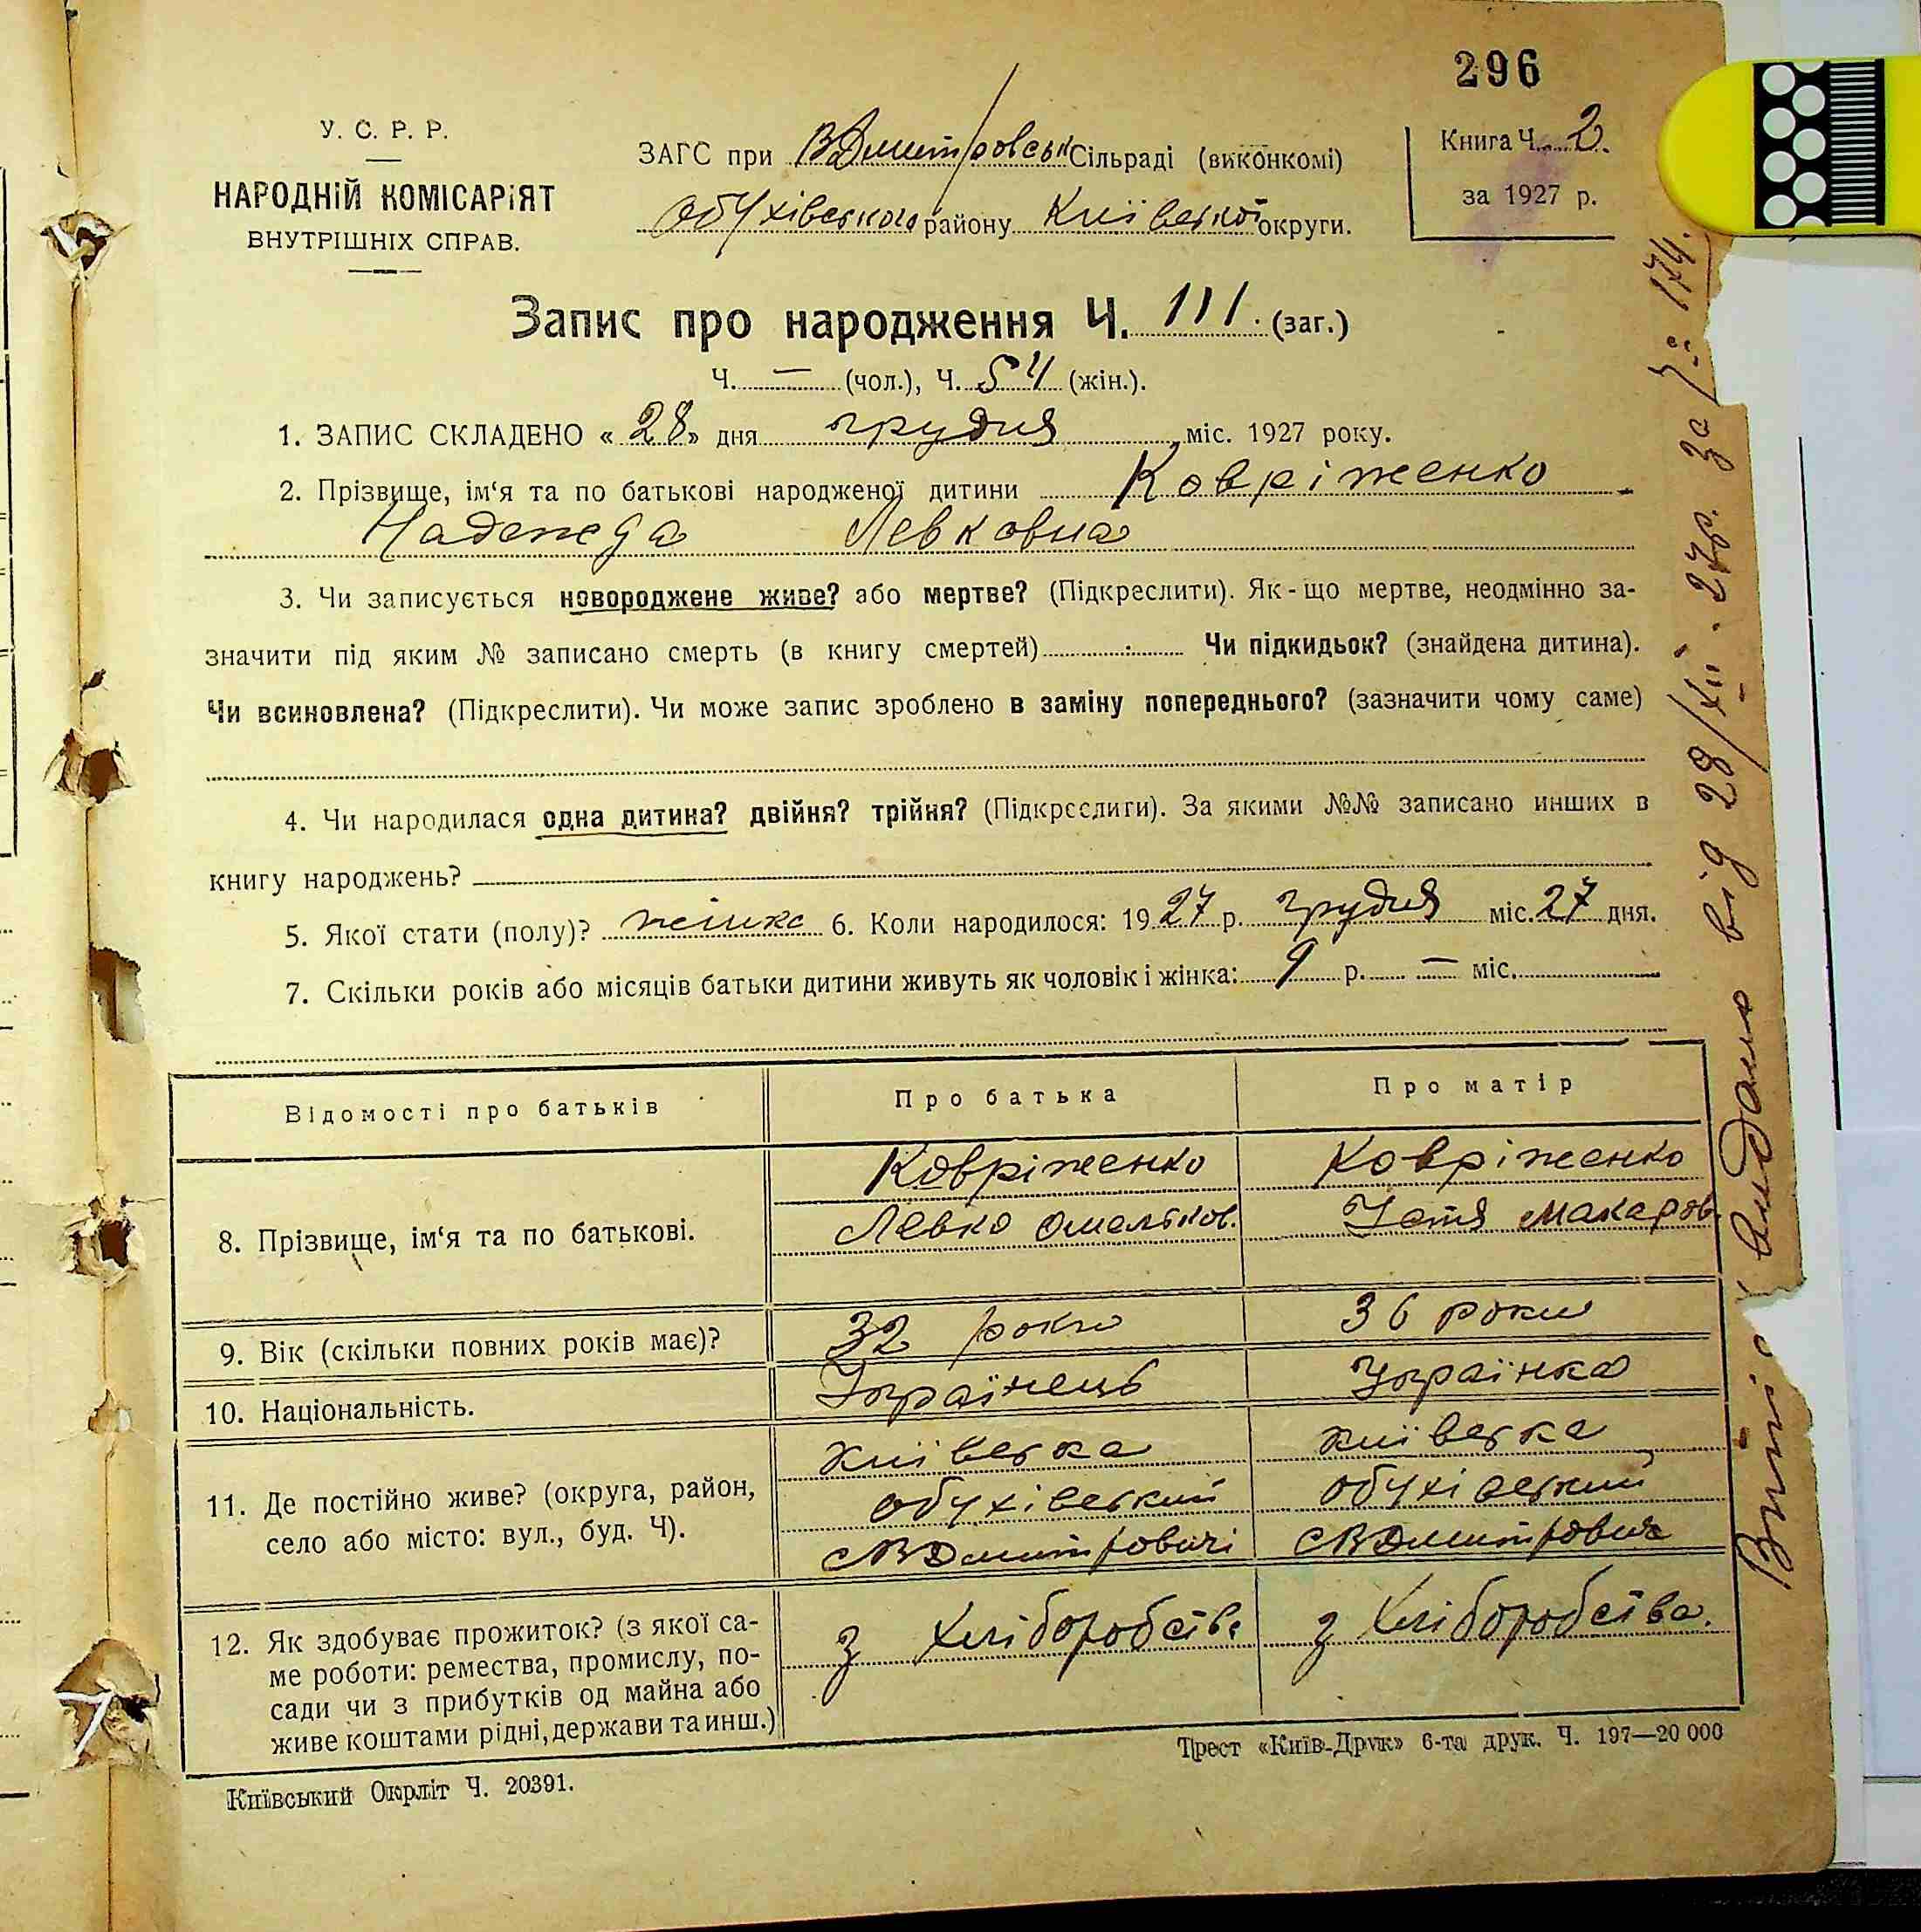 296
У. С. Р. Р.
НАРОДНІЙ КОМІСАРІЯТ
ВНУТРІШНІХ СПРАВ.
ЗАГС при ВДмитровськ Сільраді (виконкомі)
Обухівського району Київської округи.
Книга Ч. 2.
за 1927 р.
Запис про народження Ч. 111. (заг.)
Ч. — (чол.), Ч. 54 (жін.).
1. ЗАПИС СКЛАДЕНО « 28 » дня грудня міс. 1927 року.
2. Прізвище, ім‘я та по батькові народженої дитини Ковріженко
Надежда Левковна
3. Чи записується новороджене живе? або мертве? (Підкреслити). Як-що мертве, неодмінно за-
значити під яким № записано смерть (в книгу смертей) Чи підкидьок? (знайдена дитина).
Чи всиновлена? (Підкреслити). Чи може запис зроблено в заміну попереднього? (зазначити чому саме)
4. Чи народилася одна дитина? двійня? трійня? (Підкреслити). За якими №№ записано инших в
книгу народжень?
5. Якої стати (полу)? 6. Коли народилося: 1927 р. грудня міс. 27 дня.
7. Скільки років або місяців батьки дитини живуть як чоловік і жінка: 9 р. — міс.
Відомості про батьків
Про батька
Про матір
8. Прізвище, ім‘я та по батькові.
Ковріженко
Левко Омельков.
Ковріженко
Устя Макаров.
9. Вік (скільки повних років має)?
32 роки
36 роки
10. Національність.
Українець
Українка
11. Де постійно живе? (округа, район,
село або місто: вул., буд. Ч).
Київська
Обухівський
СВДмитровичі
Київська
Обухівський
СВДмитровичі
12. Як здобуває прожиток? (з якої са-
ме роботи: ремества, промислу, по-
сади чи з прибутків од майна або
живе коштами рідні, держави та инш.)
з хліборобств.
з хліборобства.
Київський Окрліт Ч. 20391.
Трест «Київ-Друк» 6-та друк. Ч. 197—20 000
видано від 28/XII. 27р. за 174.